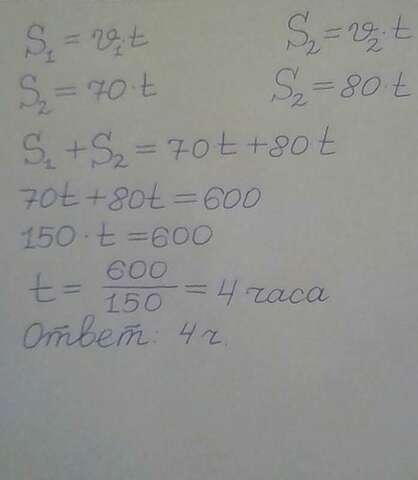 S₁ = υ₁·t S₂ = υ₂·t
S₂ = 70·t S₂ = 80·t
S₁ + S₂ = 70t + 80t
70t + 80t = 600
150 · t = 600
t = 600/150 = 4 часа
Ответ: 4 ч.